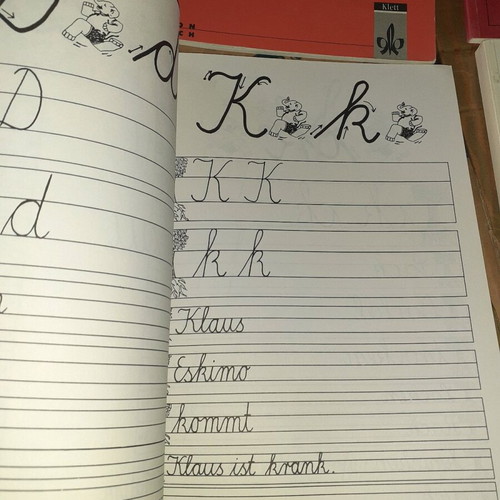 Klett
D d
D
d
K k
K K
k k
Klaus
Eskimo
kommt
Klaus ist krank.